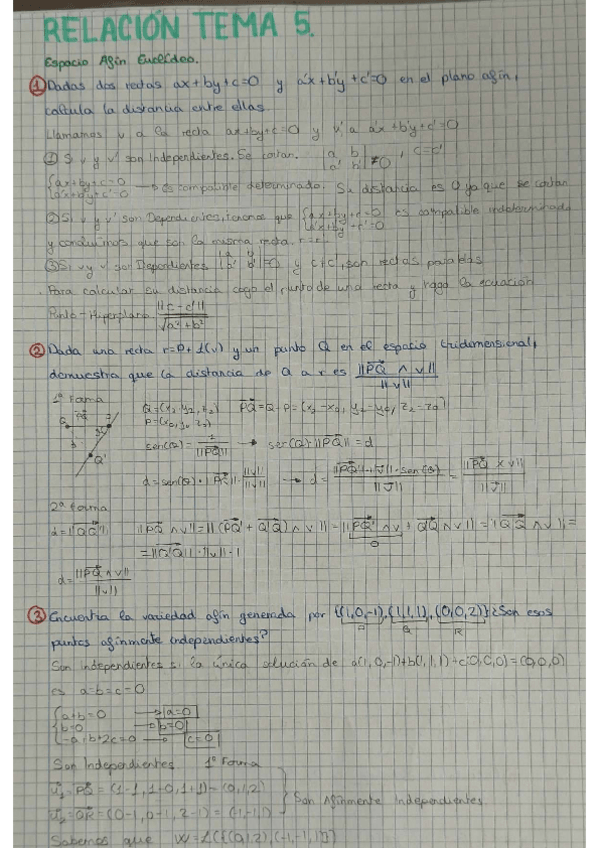 RELACIÓN TEMA 5.
Espacio Afín Euclídeo.
① Dadas dos rectas ax+by+c=0 y a'x+b'y+c'=0 en el plano afín,
calcula la distancia entre ellas.
Llamamos v a la recta ax+by+c=0 y v' a a'x+b'y+c'=0
① Si v y v' son Independientes. Se cortan. |a b / a' b'| ≠0, c=c'
{ax+by+c=0
a'x+b'y+c'=0 → es compatible determinado. Su distancia es 0 ya que se cortan
② Si v y v' son Dependientes, tenemos que {ax+by+c=0 a'x+b'y+c'=0 es compatible indeterminado
y concluimos que son la misma recta. r=r'
③ Si v y v' son Dependientes =0 y c≠c', son rectas paralelas
Para calcular su distancia cojo el punto de una recta y hago la ecuación
Punto-Hiperplano ||c-c'|| / √a²+b²
② Dada una recta r=P+L(v) y un punto Q en el espacio tridimensional,
demuestra que la distancia de Q a r es ||PQ ∧ v|| / ||v||
1ª Forma
Q=(x₂,y₂,z₂) PQ=Q-P=(x₂-x₀, y₂-y₀, z₂-z₀)
P=(x₀,y₀,z₀)
→ d
d = ||PQ × v||
2ª Forma
d=||QQ'|| ||PQ ∧ v||=||(PQ'+Q'Q) ∧ v||=||PQ' ∧ v + Q'Q ∧ v||=||Q'Q ∧ v||=
0
=||Q'Q||·||v||·1
d=||PQ ∧ v|| / ||v||
③ Encuentra la variedad afín generada por {(1,0,-1),(1,1,1),(0,0,2)} ¿Son esos
P Q R
puntos afinmente independientes?
Son independientes si la única solución de a(1,0,-1)+b(1,1,1)+c(0,0,0)=(0,0,0)
es a=b=c=0
{a+b=0 → a=0
b=0 → b=0
-a+b+2c=0 → c=0
Son Independientes 1ª Forma
PQ = (1-1,1-0,1+1)=(0,1,2)
QR = (0-1,0-1,2-1)=(-1,-1,1)
Son Afinmente Independientes.
Sabemos que W=L({(0,1,2),(-1,-1,1)})